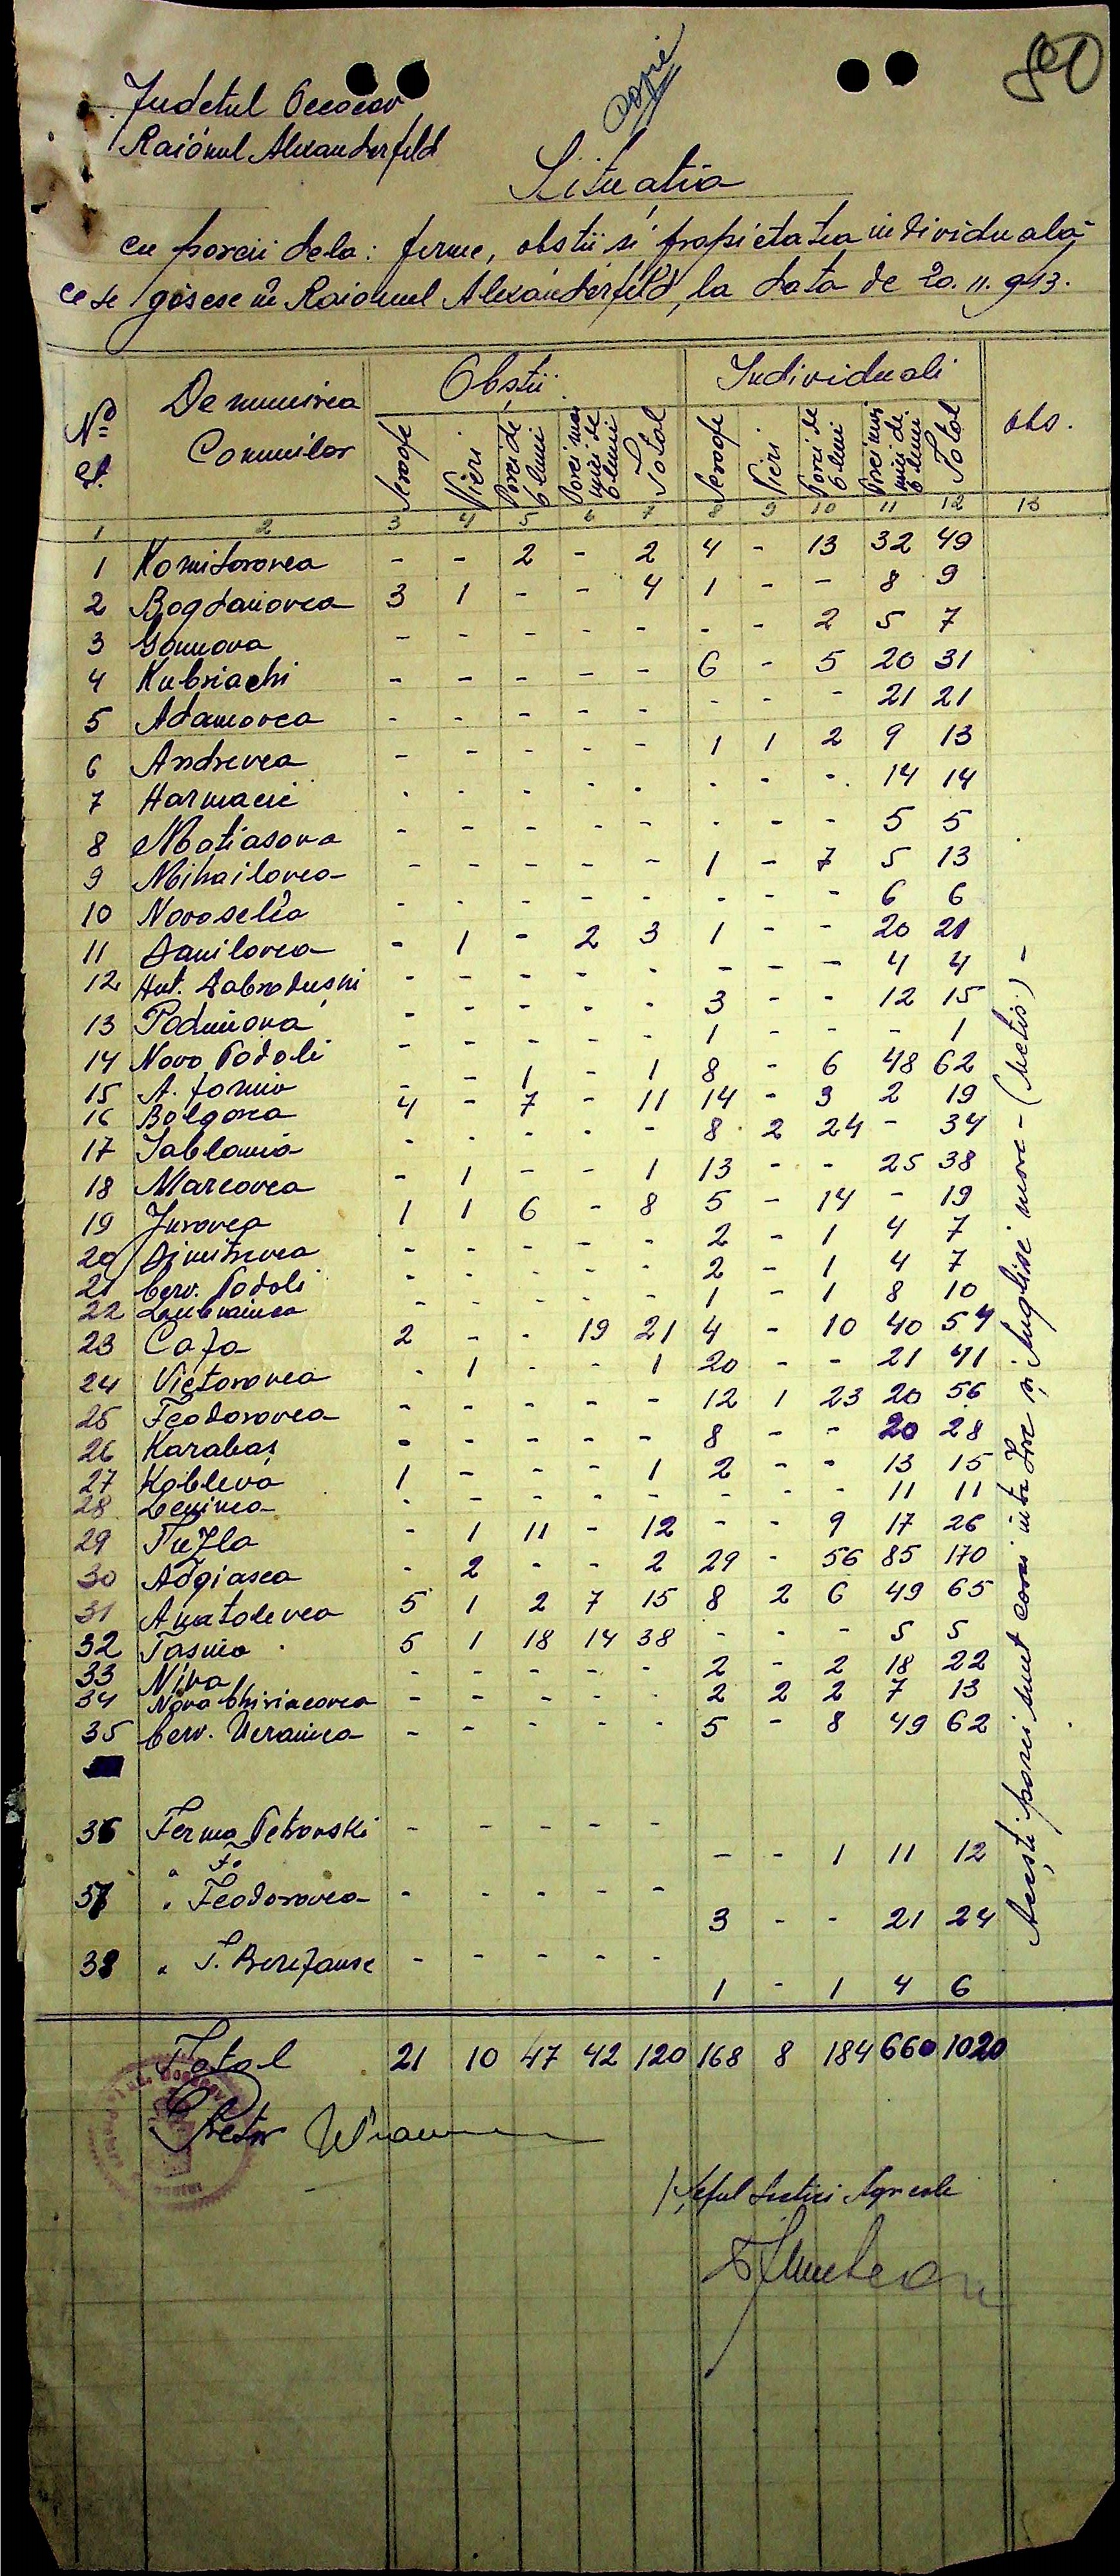 80
copie
Judetul Oceacov
Raionul Alexanderfeld
Situatia
cu porcii dela: ferme, obstii si propietatea individuală
ce se găsesc în Raionul Alexanderfeld, la data de 20.11.943.
No. Denumirea Comunilor Obștii Individuali obs.
Scroafe Vieri Porci de 6 luni Porci mai mici de 6 luni Total Scroafe Vieri Porci de 6 luni Porci mai mici de 6 luni Total
1 2 3 4 5 6 7 8 9 10 11 12 13
1 Komisarovca - - 2 - 2 4 - 13 32 49
2 Bogdanovca 3 1 - - 4 1 - - 8 9
3 - - - - - - - 2 5 7
4 Kubriachi - - - - - 6 - 5 20 31
5 Adamovca - - - - - - - - 21 21
6 Andrevca - - - - - 1 1 2 9 13
7 Harmacii - - - - - - - - 14 14
8 Matiasova - - - - - - - - 5 5
9 Mihailovca - - - - - 1 - 7 5 13
10 Novoselia - - - - - - - - 6 6
11 Danilovca - 1 - 2 3 1 - - 20 21
12 Hut. Dabrodușni - - - - - - - - 4 4
13 Podimova - - - - - 3 - - 12 15
14 Novo Podoli - - - - - 1 - - - 1
15 A. - - 1 - 1 8 - 6 48 62
16 Bolgarca 4 - 7 - 11 14 - 3 2 19
17 Iablonia - - - - - 8 2 24 - 34
18 Marcovca - 1 - - 1 13 - - 25 38
19 Jurovca 1 1 6 - 8 5 - 14 - 19
20 Dimitrevca - - - - - 2 - 1 4 7
21 Cerv. Podoli - - - - - 2 - 1 4 7
22 - - - - - 1 - 1 8 10
23 Cafa 2 - - 19 21 4 - 10 40 54
24 Victorovca - 1 - - 1 20 - - 21 41
25 Feodorovca - - - - - 12 1 23 20 56
26 Karabaș - - - - - 8 - - 20 28
27 Kobleva 1 - - - 1 2 - - 13 15
28 Leninca - - - - - - - - 11 11
29 Tuzla - 1 11 - 12 - - 9 17 26
30 Adgiasca - 2 - - 2 29 - 56 85 170
31 Anatolevca 5 1 2 7 15 8 2 6 49 65
32 Tasino 5 1 18 14 38 - - - 5 5
33 Niva - - - - - 2 - 2 18 22
34 Nova Chiriacovca - - - - - 2 2 2 7 13
35 Cerv. Ucrainca - - - - - 5 - 8 49 62
36 Ferma Petrovski - - - - - - - 1 11 12
37 " Feodorovca - - - - - 3 - - 21 24
38 " T. Berezanse - - - - - 1 - 1 4 6
Acești porci sunt corcii intre și Englise mare - (Metis) -
Total 21 10 47 42 120 168 8 184 660 1020
Pretor
/ Șeful Sectiei Agricole